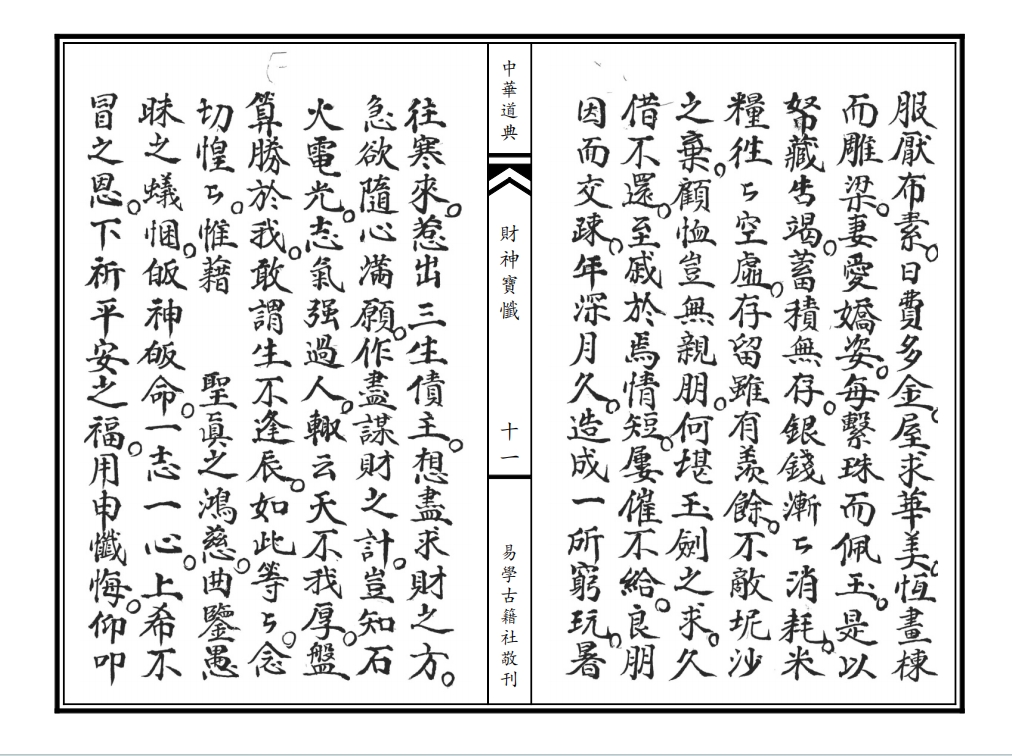 服厭布素。日費多金。屋求華美。恆畫棟
而雕梁。妻愛嬌姿。每繫珠而佩玉。是以
帑藏告竭。蓄積無存。銀錢漸〻消耗。米
糧徃〻空虛。存留雖有羨餘。不敵坭沙
之棄。顧恤豈無親朋。何堪玉劍之求。久
借不還。至戚於焉情短。屢催不給。良朋
因而交疎。年深月久。造成一所窮玩。暑
中華道典
財神寶懺
十一
易學古籍社敬刊
往寒來。惹出三生債主。想盡求財之方。
急欲隨心滿願。作盡謀財之計。豈知石
火電光。志氣强過人。輙云天不我厚。盤
算勝於我。敢謂生不逢辰。如此等〻。念
切惶〻。惟藉 聖眞之鴻慈。曲鑒愚
昧之蟻悃。皈神皈命。一志一心。上希不
冒之恩。下祈平安之福。用申懺悔。仰叩